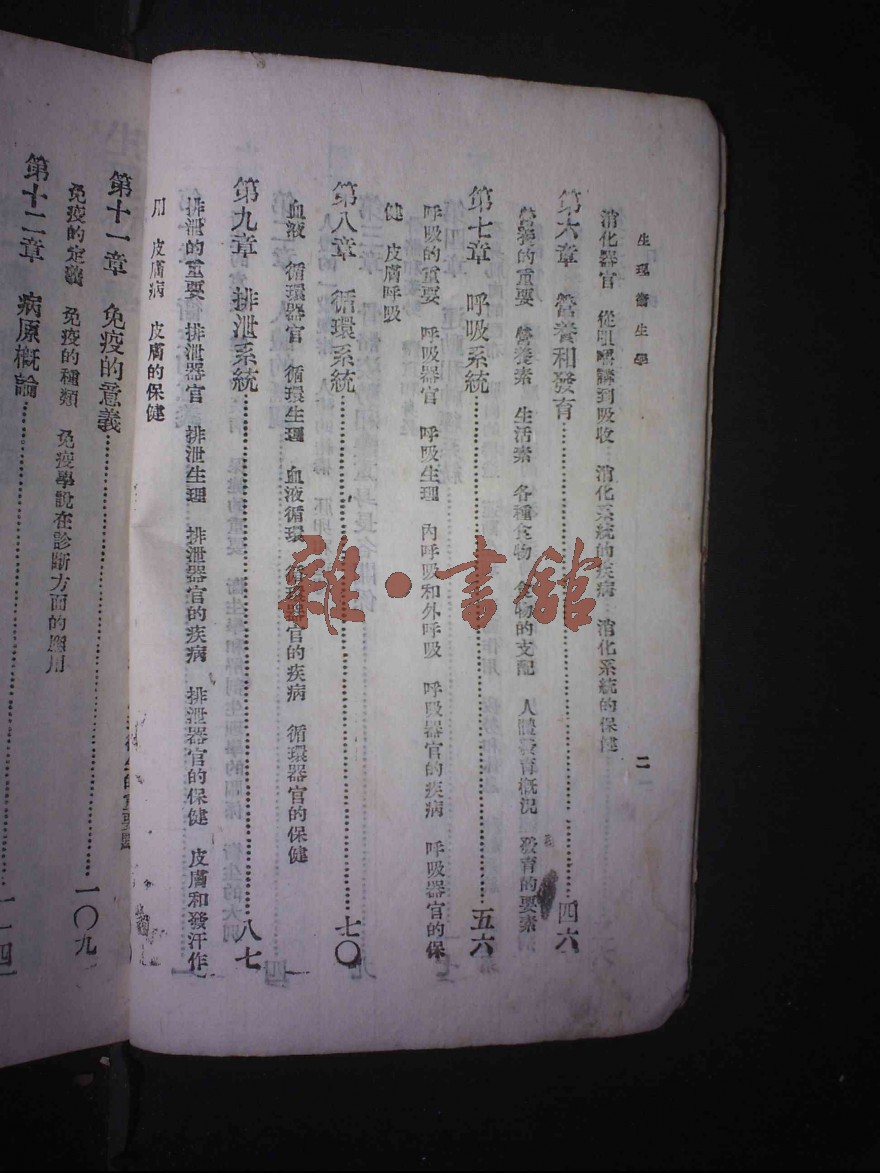 生理衞生學
二
消化器官　從咀嚼到吸收　消化系統的疾病　消化系統的保健
第六章　營養和發育……四六
營養的重要　營養素　生活素　各種食物　食物的支配　人體發育概況　發育的要素
第七章　呼吸系統……五六
呼吸的重要　呼吸器官　呼吸生理　內呼吸和外呼吸　呼吸器官的疾病　呼吸器官的保
健　皮膚呼吸
第八章　循環系統……七〇
血液　循環器官　循環生理　血液循環　循環器官的疾病　循環器官的保健
第九章　排泄系統……八七
排泄的重要　排泄器官　排泄生理　排泄器官的疾病　排泄器官的保健　皮膚和發汗作
用　皮膚病　皮膚的保健
第十一章　免疫的意義……一〇九
免疫的定義　免疫的種類　免疫學說在診斷方面的應用
第十二章　病原概論……一一四
雜·書館